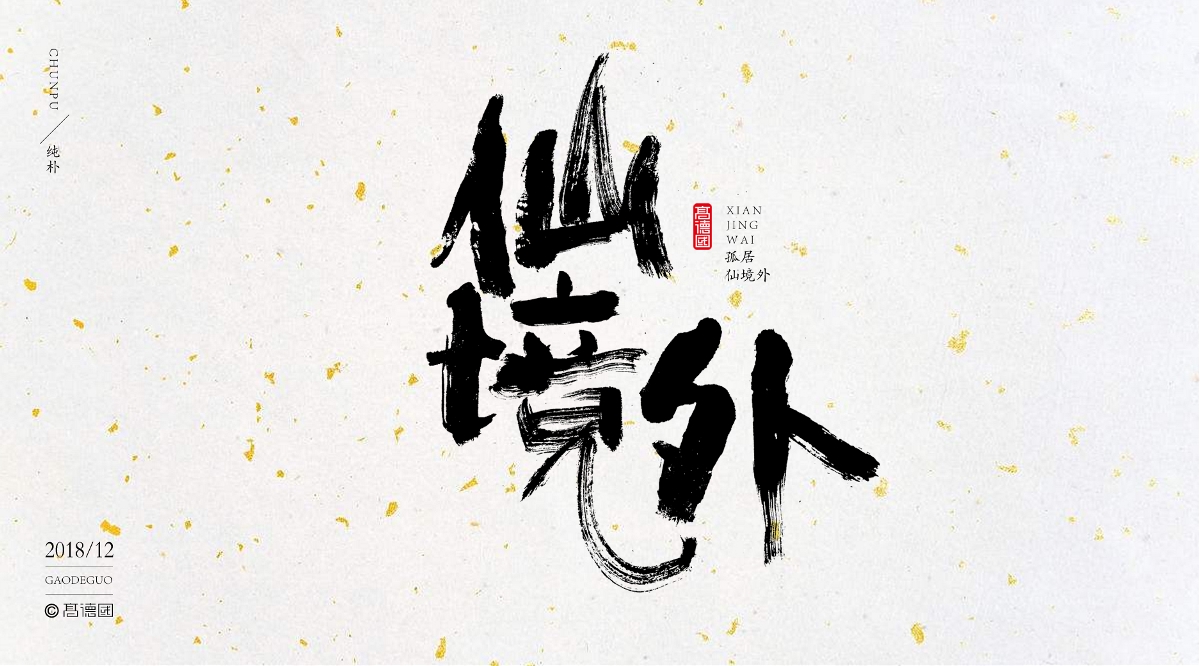 CHUNPU
纯朴
仙
境外
髙德国
XIAN
JING
WAI
孤居
仙境外
2018/12
GAODEGUO
©髙德国